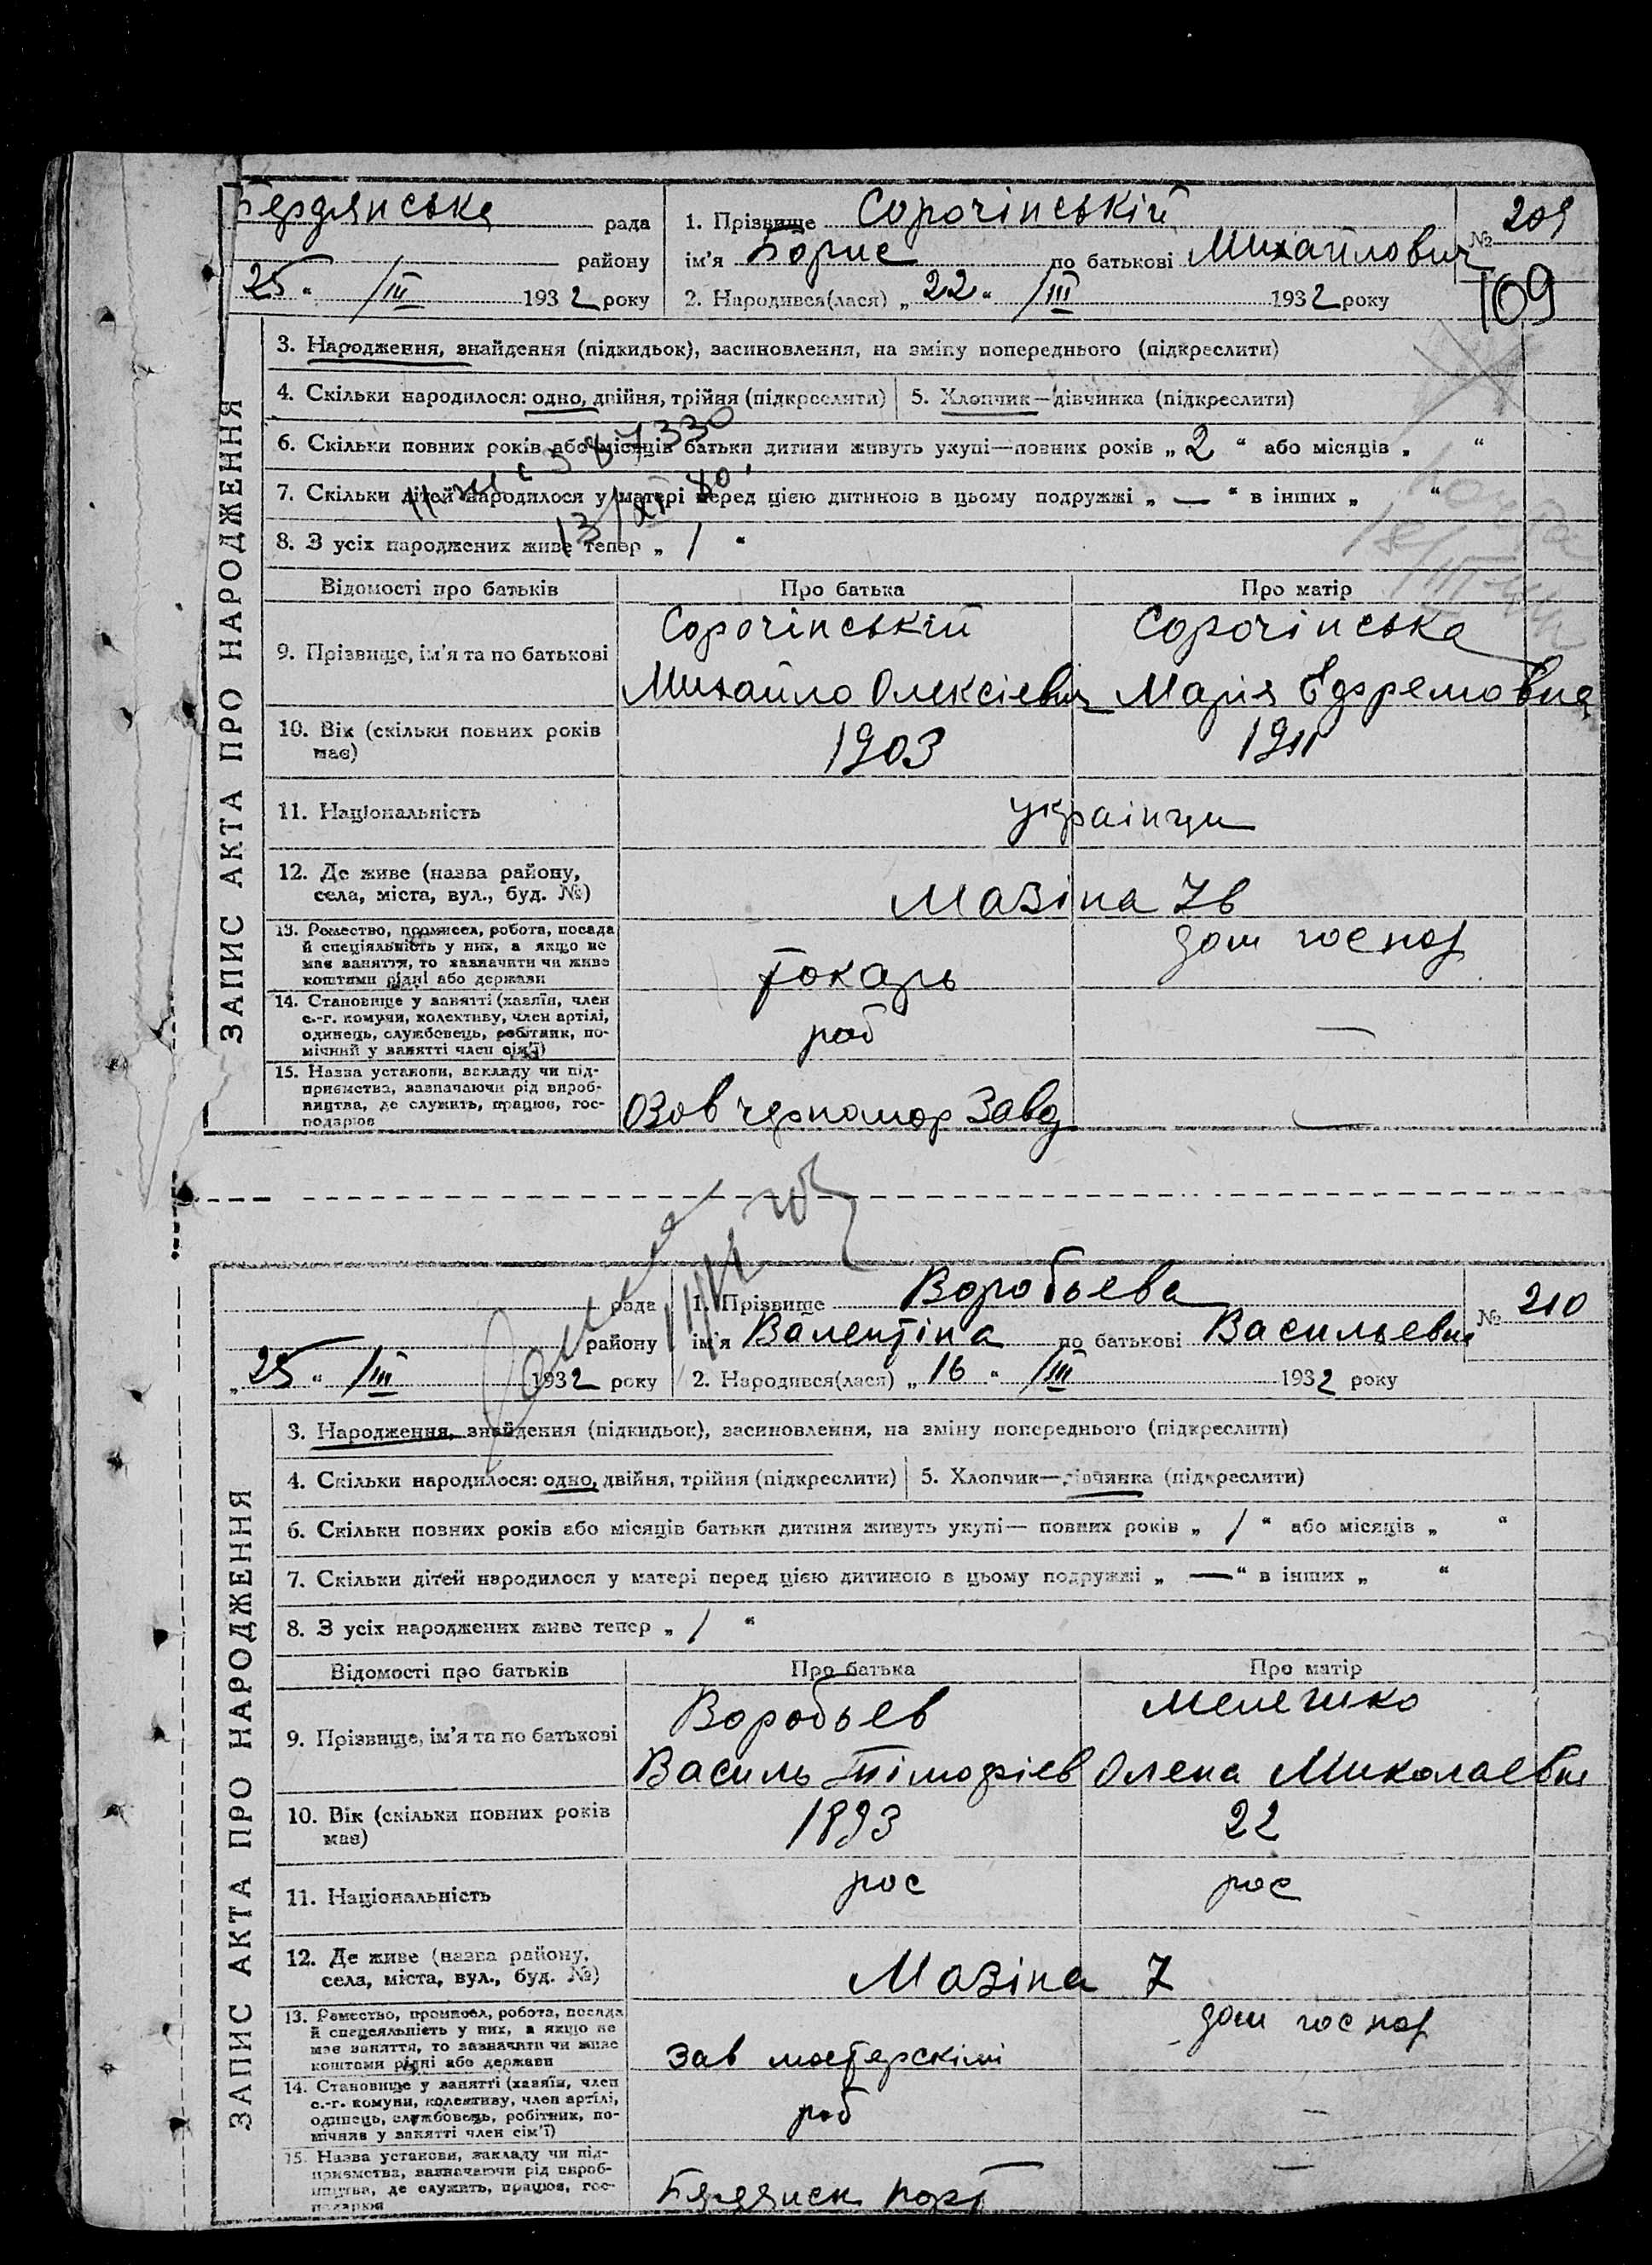 Бердянська рада
району
25 " /III 1932 року
1. Прізвище Сорочінській
ім'я Борис по батькові Михайлович
2. Народився(лася) „ 22 " /III 1932 року
№ 209
109
ЗАПИС АКТА ПРО НАРОДЖЕННЯ
3. Народження, знайдення (підкидьок), засиновлення, на зміну попереднього (підкреслити)
4. Скільки народилося: одно, двійня, трійня (підкреслити)
5. Хлопчик—дівчинка (підкреслити)
6. Скільки повних років або місяців батьки дитини живуть укупі—повних років „ 2 " або місяців „ "
7. Скільки дітей народилося у матері перед цією дитиною в цьому подружжі „ — " в інших „ "
8. З усіх народжених живе тепер „ 1 "
Відомості про батьків Про батька Про матір
9. Прізвище, ім'я та по батькові
Сорочінській
Михайло Олексіевич
Сорочінська
Марія Ефремовна
10. Вік (скільки повних років має)
1903
1911
11. Національність
українци
12. Де живе (назва району,
села, міста, вул., буд. №)
Мазіна 7в
13. Ремество, промисел, робота, посада
й спеціяльність у них, а якщо не
має заняття, то зазначити чи живе
коштами рідні або держави
токарь
дом госпор
14. Становище у занятті (хазяїн, член
с.-г. комуни, колективу, член артілі,
одинець, службовець, робітник, по-
мічний у занятті член сім'ї)
роб
—
15. Назва установи, закладу чи під-
приємства, зазначаючи рід вироб-
ництва, де служить, працює, гос-
подарює
Озов черномор Завд
—
рада
району
„ 25 " /III 1932 року
1. Прізвище Воробьева
ім'я Валентіна по батькові Васильевна
2. Народився(лася) „ 16 " /III 1932 року
№ 210
ЗАПИС АКТА ПРО НАРОДЖЕННЯ
3. Народження, знайдення (підкидьок), засиновлення, на зміну попереднього (підкреслити)
4. Скільки народилося: одно, двійня, трійня (підкреслити)
5. Хлопчик—дівчинка (підкреслити)
6. Скільки повних років або місяців батьки дитини живуть укупі— повних років „ 1 " або місяців „ "
7. Скільки дітей народилося у матері перед цією дитиною в цьому подружжі „ — " в інших „ "
8. З усіх народжених живе тепер „ 1 "
Відомості про батьків Про батька Про матір
9. Прізвище, ім'я та по батькові
Воробьев
Василь Тімофіев
Мелешко
Олена Миколаевна
10. Вік (скільки повних років має)
1893
22
11. Національність
рос
рос
12. Де живе (назва району,
села, міста, вул., буд. №)
Мазіна 7
13. Ремество, промисел, робота, посада
й спецеяльність у них, а якщо не
має заняття, то зазначити чи живе
коштами рідні або держави
Зав мастерскімі
дом госпор
14. Становище у занятті (хазяїн, член
с.-г. комуни, колективу, член артілі,
одинець, службовець, робітник, по-
мічник у занятті член сім'ї)
роб
—
15. Назва установи, закладу чи під-
приємства, зазначаючи рід вироб-
ництва, де служить, працює, гос-
подарює
Бердянск порт
—